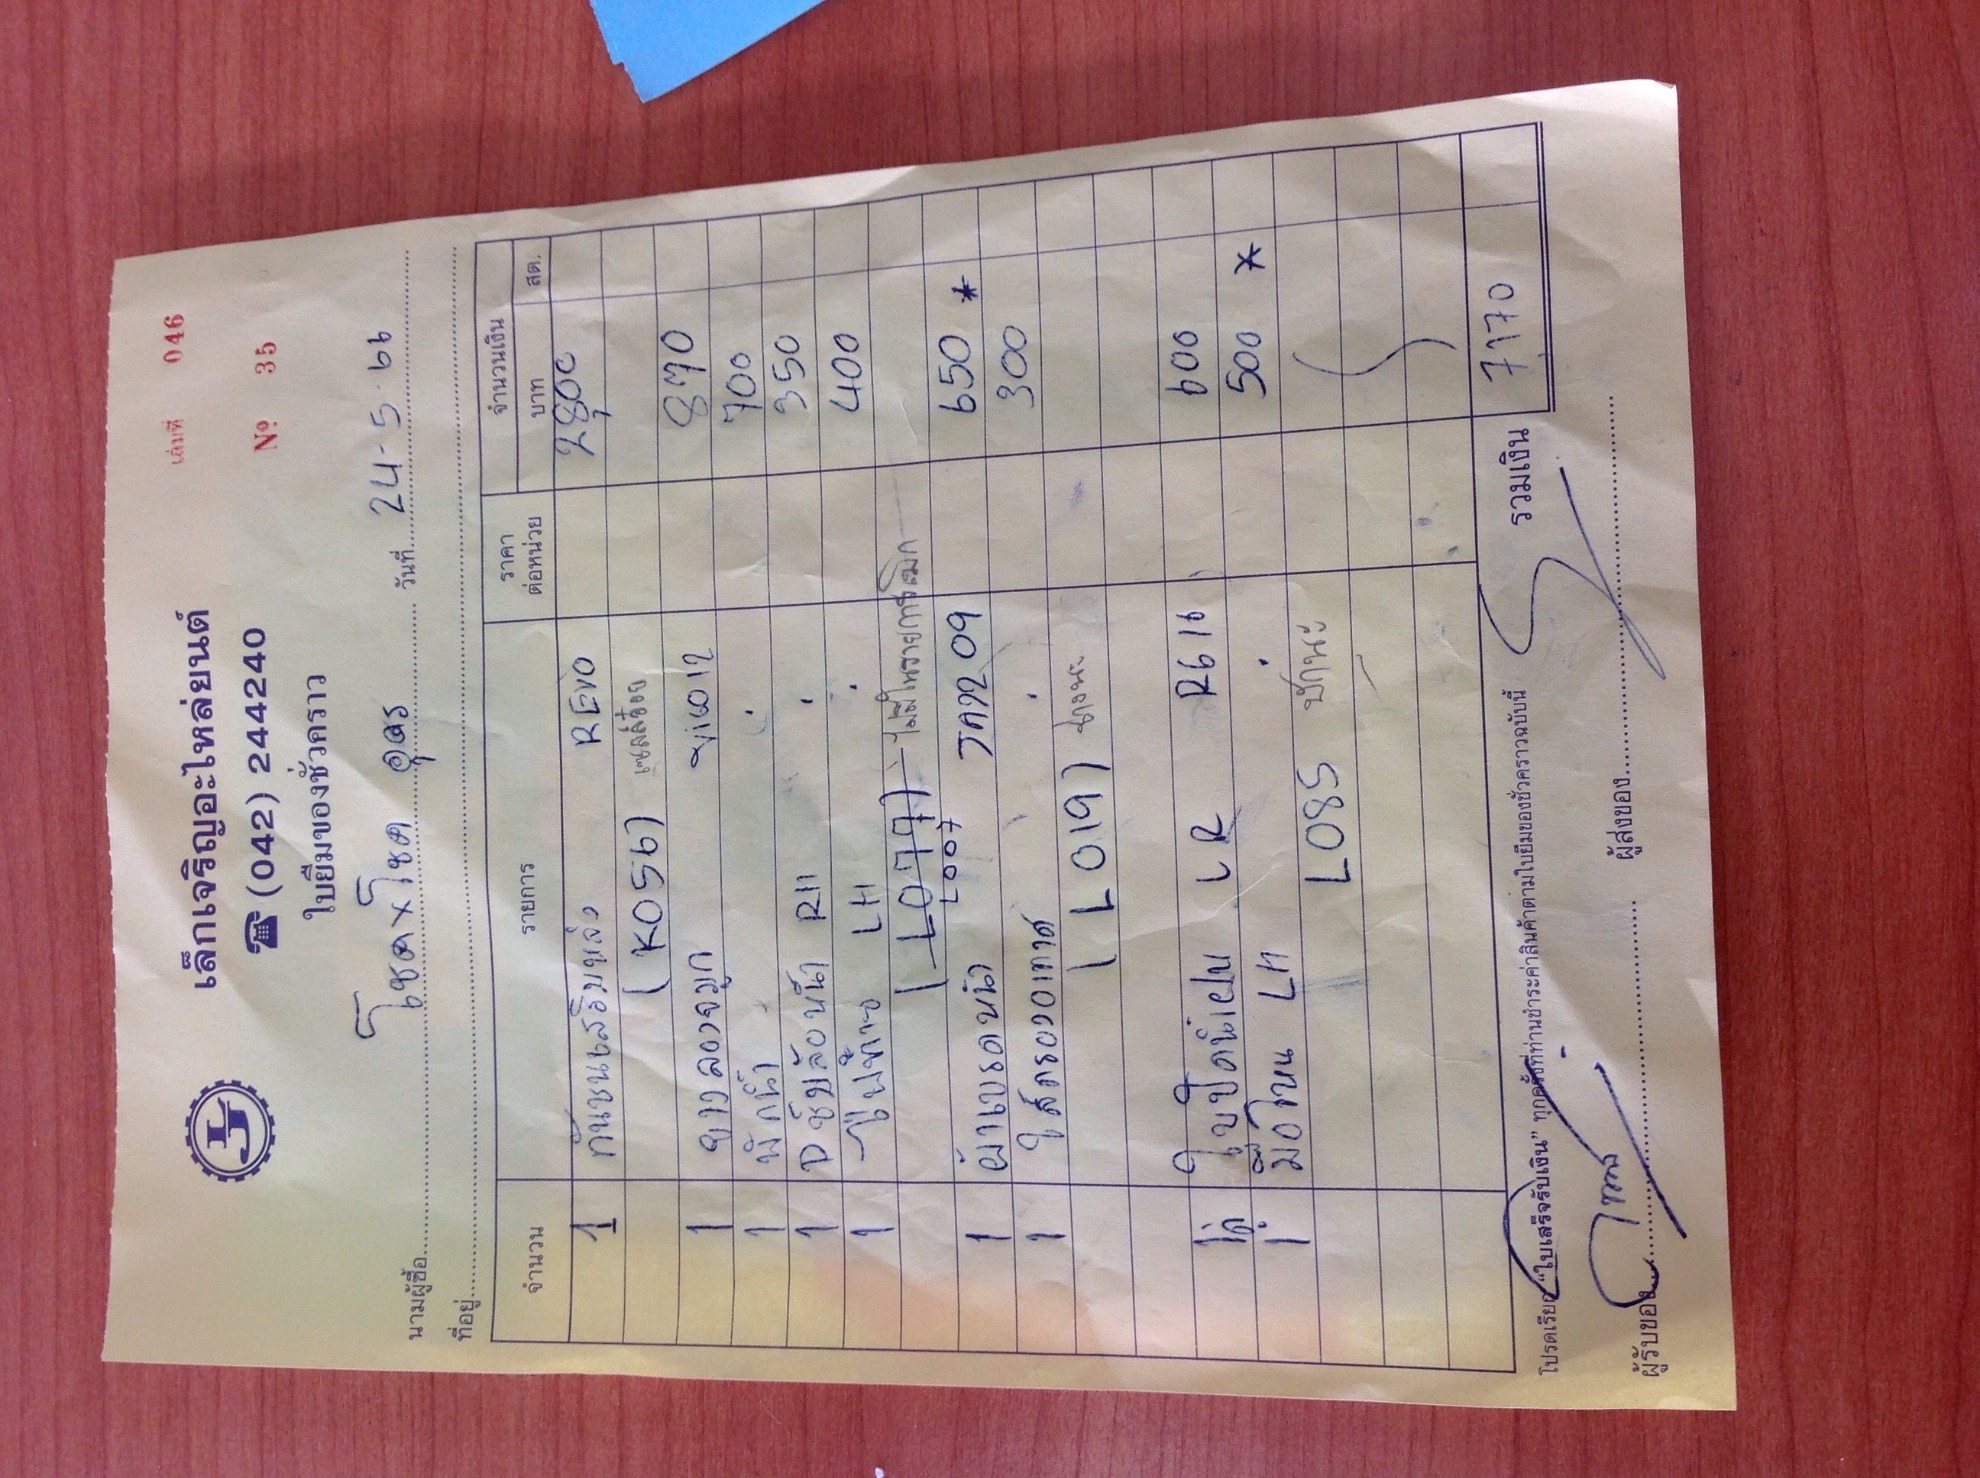 เล่มที่ 046
เล็กเจริญอะไหล่ยนต์
☎ (042) 244240
Nº 35
ใบยืมของชั่วคราว
นามผู้ซื้อ โชค x โชค อุดร วันที่ 24-5-66
ที่อยู่
จำนวน รายการ ราคาต่อหน่วย จำนวนเงิน
บาท สต.
1 กันชนเสริมหลัง REVO 2800
(K056)
1 ยางลองจมูก 870
1 พักน้ำ 700
1 RH 350
1 LH 400
(L077) ไม่มีในรายการเบิก
L007
1 ผ้าเบรคหน้า 09 650 *
1 ไส้กรองอากาศ 300
(L019)
LR R616 600
1 LH 500 *
L085
รวมเงิน 7170
โปรดเรียก "ใบเสร็จรับเงิน" ทุกครั้งที่ท่านชำระค่าสินค้าตามใบยืมของชั่วคราวฉบับนี้
ผู้รับของ ผู้ส่งของ